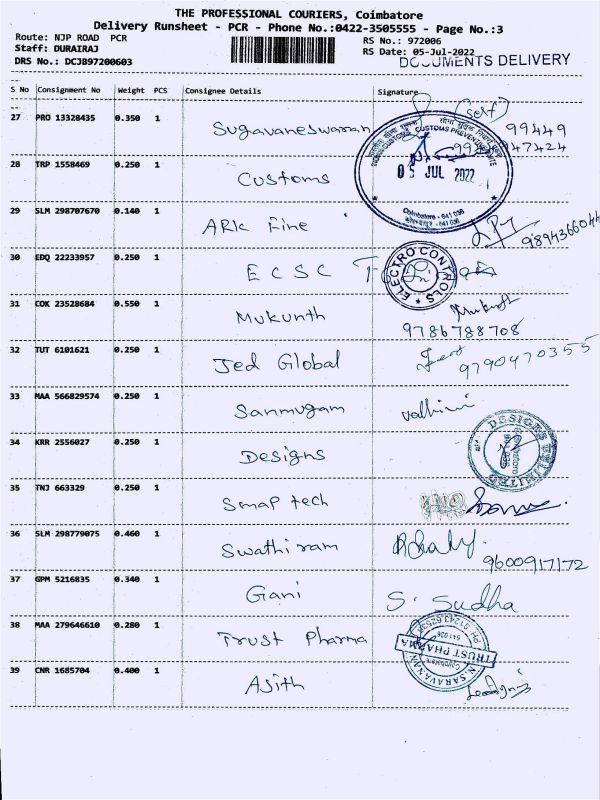 THE PROFESSIONAL COURIERS, Coimbatore
Delivery Runsheet - PCR - Phone No.:0422-3505555 - Page No.:3
Route: NJP ROAD PCR
Staff: DURAIRAJ
DRS No.: DCJ897200603
RS No.: 972006
RS Date: 05-Jul-2022
DOCUMENTS DELIVERY
S No Consignment No Weight PCS Consignee Details Signature
27 PRO 13328435 0.350 1 Sugavaneswaran (self) 99449
47424
28 TRP 1558469 0.250 1 Customs
CUSTOMS PREVENTIVE
05 JUL 2022
Coimbatore - 641 036
29 SLM 298707670 0.140 1 ARK Fine 9894366044
30 EDQ 22233957 0.250 1 ECSC
ELECTRO CONTROLS
31 COK 23528684 0.550 1 Mukunth Mukunth
9786788708
32 TUT 6101621 0.250 1 Jed Global 9790470355
33 MAA 566829574 0.250 1 Sanmugam valhini
34 KRR 2556027 0.250 1 Designs
DESIGNS UNLIMITED
35 TNJ 663329 0.250 1 Smap tech
36 SLM 298779075 0.460 1 Swathi ram
9600917172
37 GPM 5216835 0.340 1 Gani S. Sudha
38 MAA 279646610 0.280 1 Trust Pharma
TRUST PHARMA
N. SARAVANAN
Coimbatore
641 026
39 CNR 1685704 0.400 1 Ajith